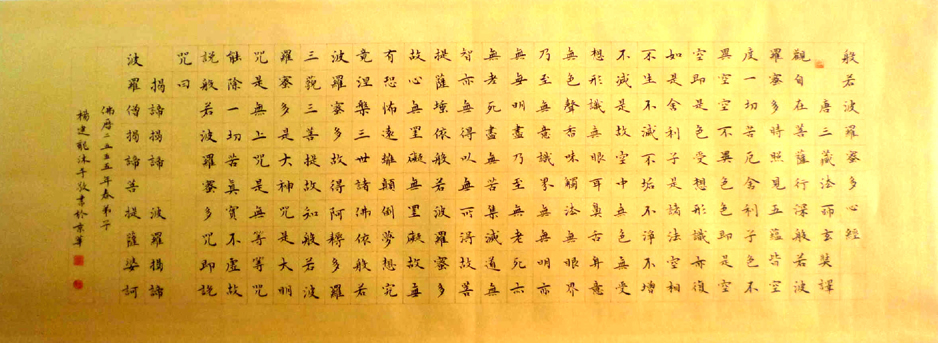 般若波羅蜜多心經
唐三藏法師玄奘譯
觀自在菩薩行深般若波
羅蜜多時照見五蘊皆空
度一切苦厄舍利子色不
異空空不異色色即是空
空即是色受想行識亦復
如是舍利子是諸法空相
不生不滅不垢不淨不增
不減是故空中無色無受
想行識無眼耳鼻舌身意
無色聲香味觸法無眼界
乃至無意識界無無明亦
無無明盡乃至無老死亦
無老死盡無苦集滅道無
智亦無得以無所得故菩
提薩埵依般若波羅蜜多
故心無罣礙無罣礙故無
有恐怖遠離顛倒夢想究
竟涅槃三世諸佛依般若
波羅蜜多故得阿耨多羅
三藐三菩提故知般若波
羅蜜多是大神咒是大明
咒是無上咒是無等等咒
能除一切苦真實不虛故
說般若波羅蜜多咒即說
咒曰
揭諦揭諦 波羅揭諦
波羅僧揭諦菩提薩婆訶
佛曆二五五五年春弟子
楊建沐手敬書於京華